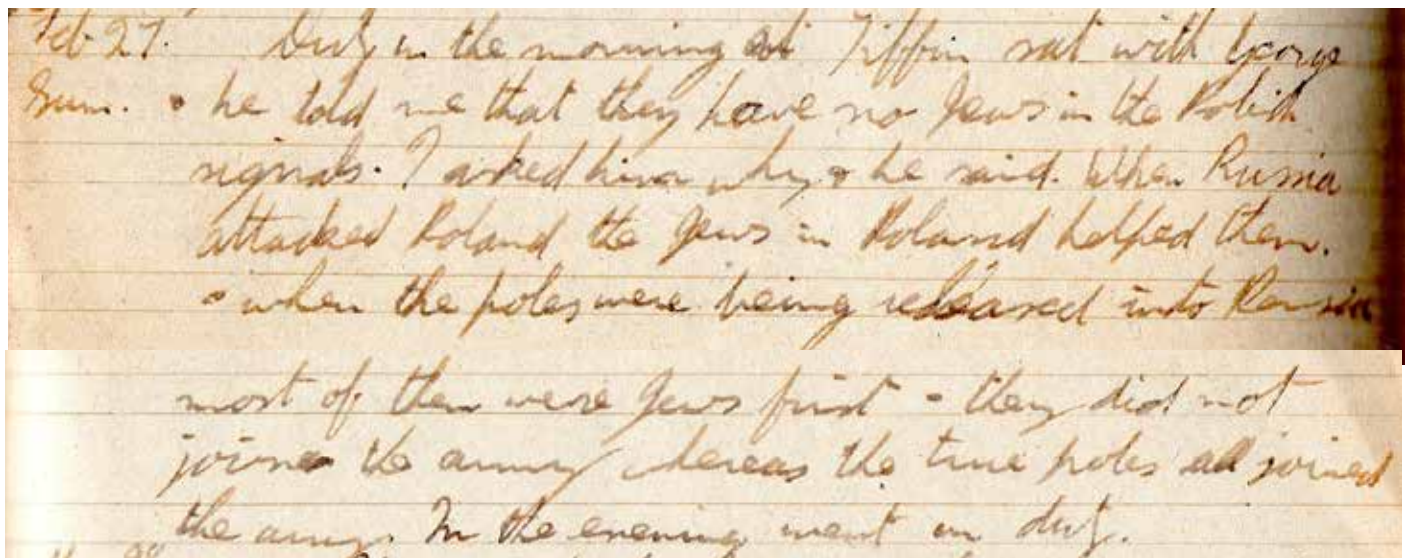 Feb 27. Duty in the morning at Tiffin sat with George
Sun. & he told me that they have no Jews in the Polish
signals. I asked him why & he said. When Russia
attacked Poland the Jews in Poland helped them.
& when the poles were being released into Persia
most of them were Jews first - they did not
joined the army whereas the true poles all joined
the army. In the evening went on duty.